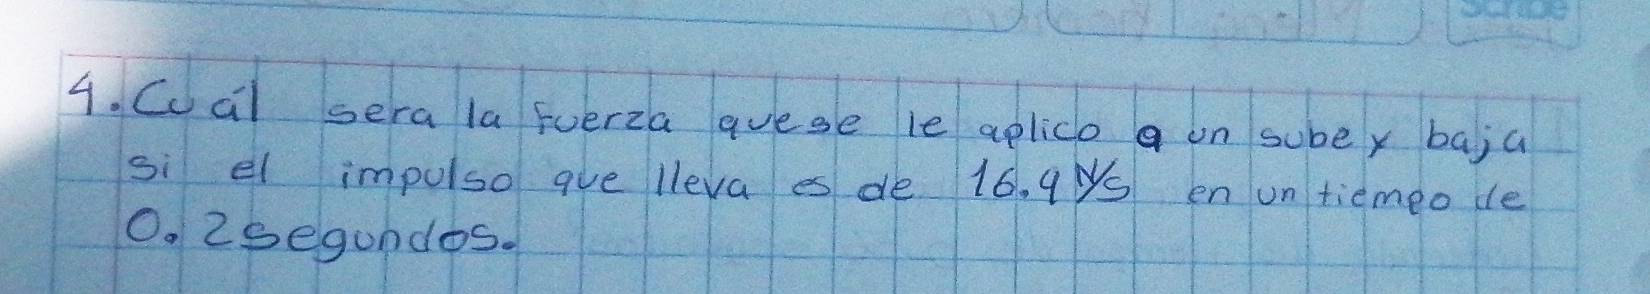 4. Cuál sera la Fuerza que se le aplico a un sube y baja
si el impulso que lleva es de 16.9 N/S en un tiempo de
0.2 segundos.